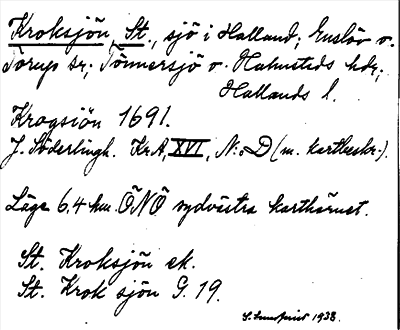 Kroksjön, St., sjö i Halland; Enslöv o.
Torup sr; Tönnersjö o. Halmstads hdr;
Hallands l.
Krogsiön 1691.
J. Söderlingh. KrA, XVI, N:o D (m. kartbeskr.).
Läge 6,4 km. ÖNÖ sydvästra karthörnet.
St. Kroksjön ek.
St. Krok sjön G. 19.
S. Lundqvist 1938.